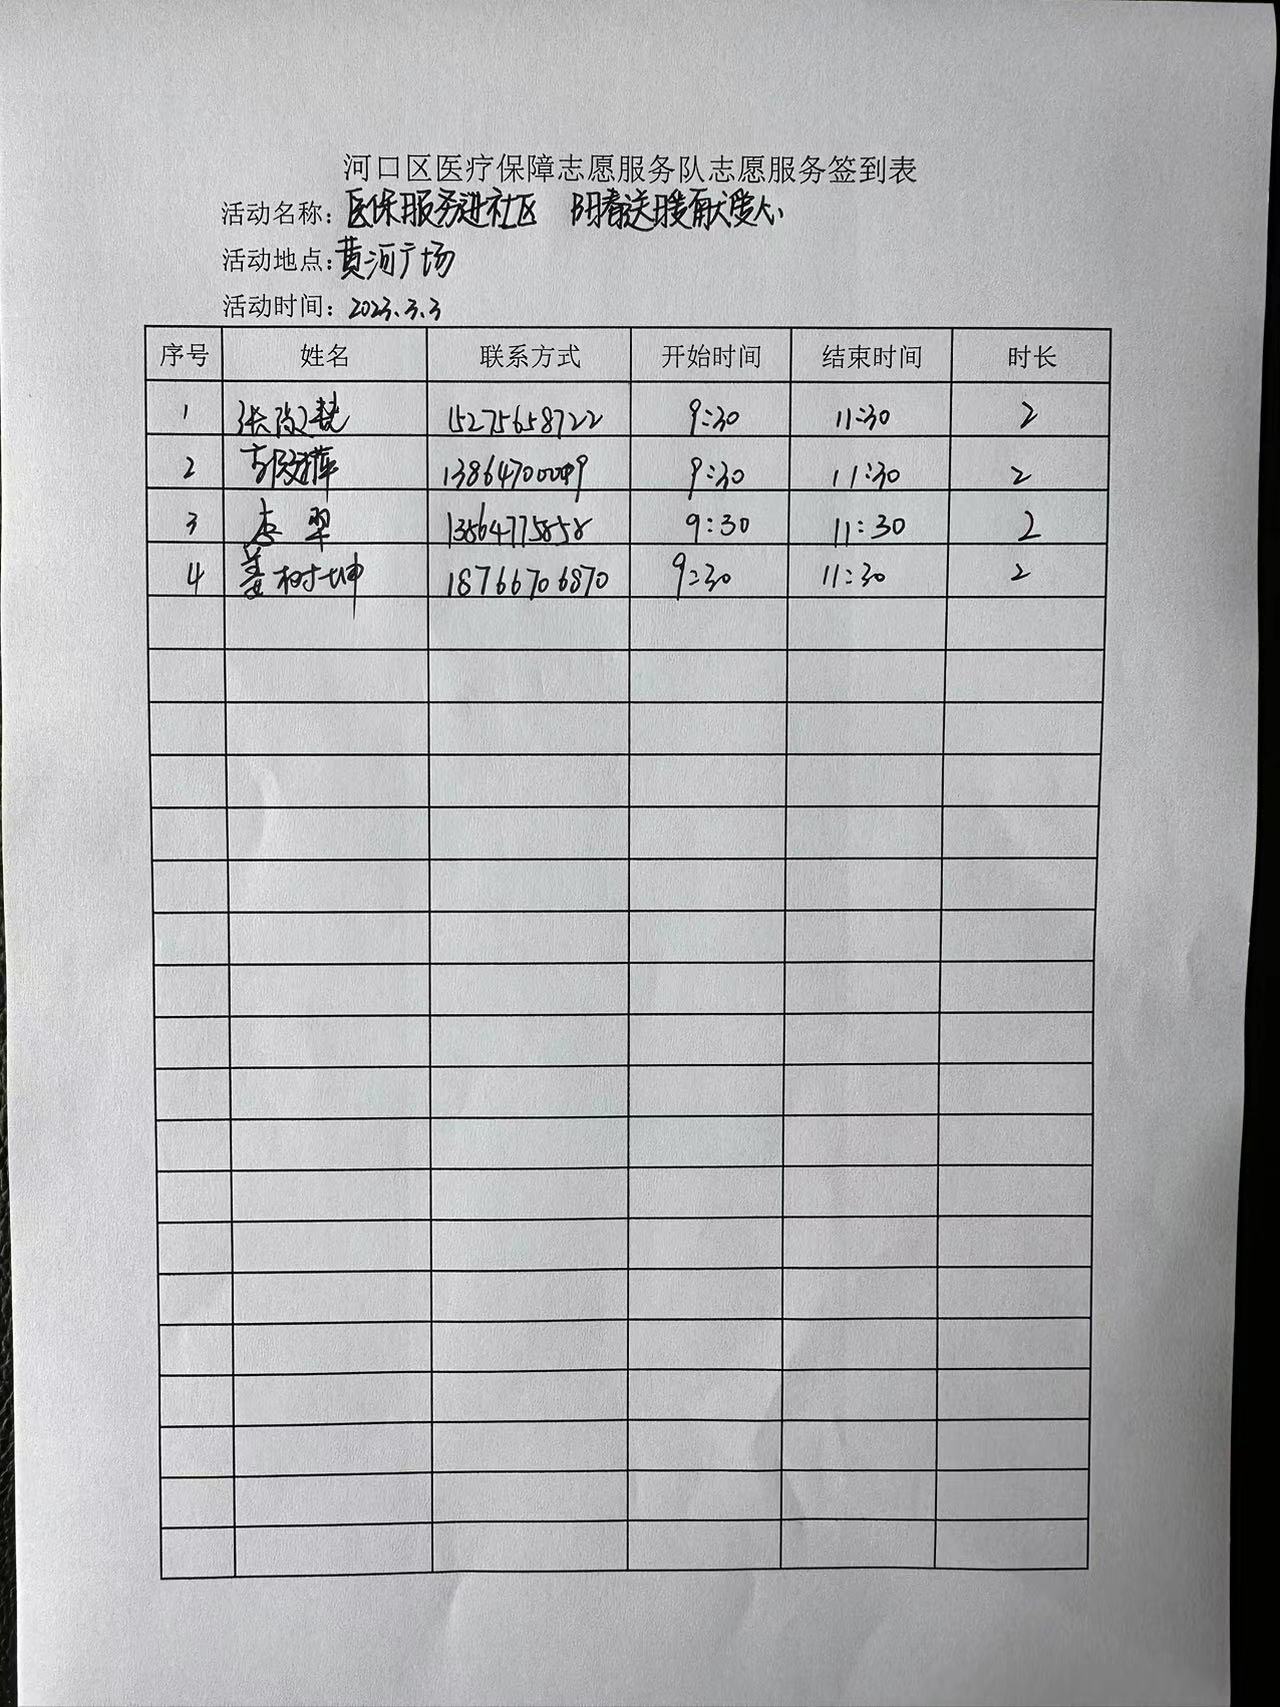 河口区医疗保障志愿服务队志愿服务签到表
活动名称：医保服务进社区 阳春送暖献爱心
活动地点：黄河广场
活动时间：2023.3.3
序号 姓名 联系方式 开始时间 结束时间 时长
1 张 15275658722 9:30 11:30 2
2 13864700009 9:30 11:30 2
3 李翠 13864775858 9:30 11:30 2
4 姜树坤 18766706870 9:30 11:30 2